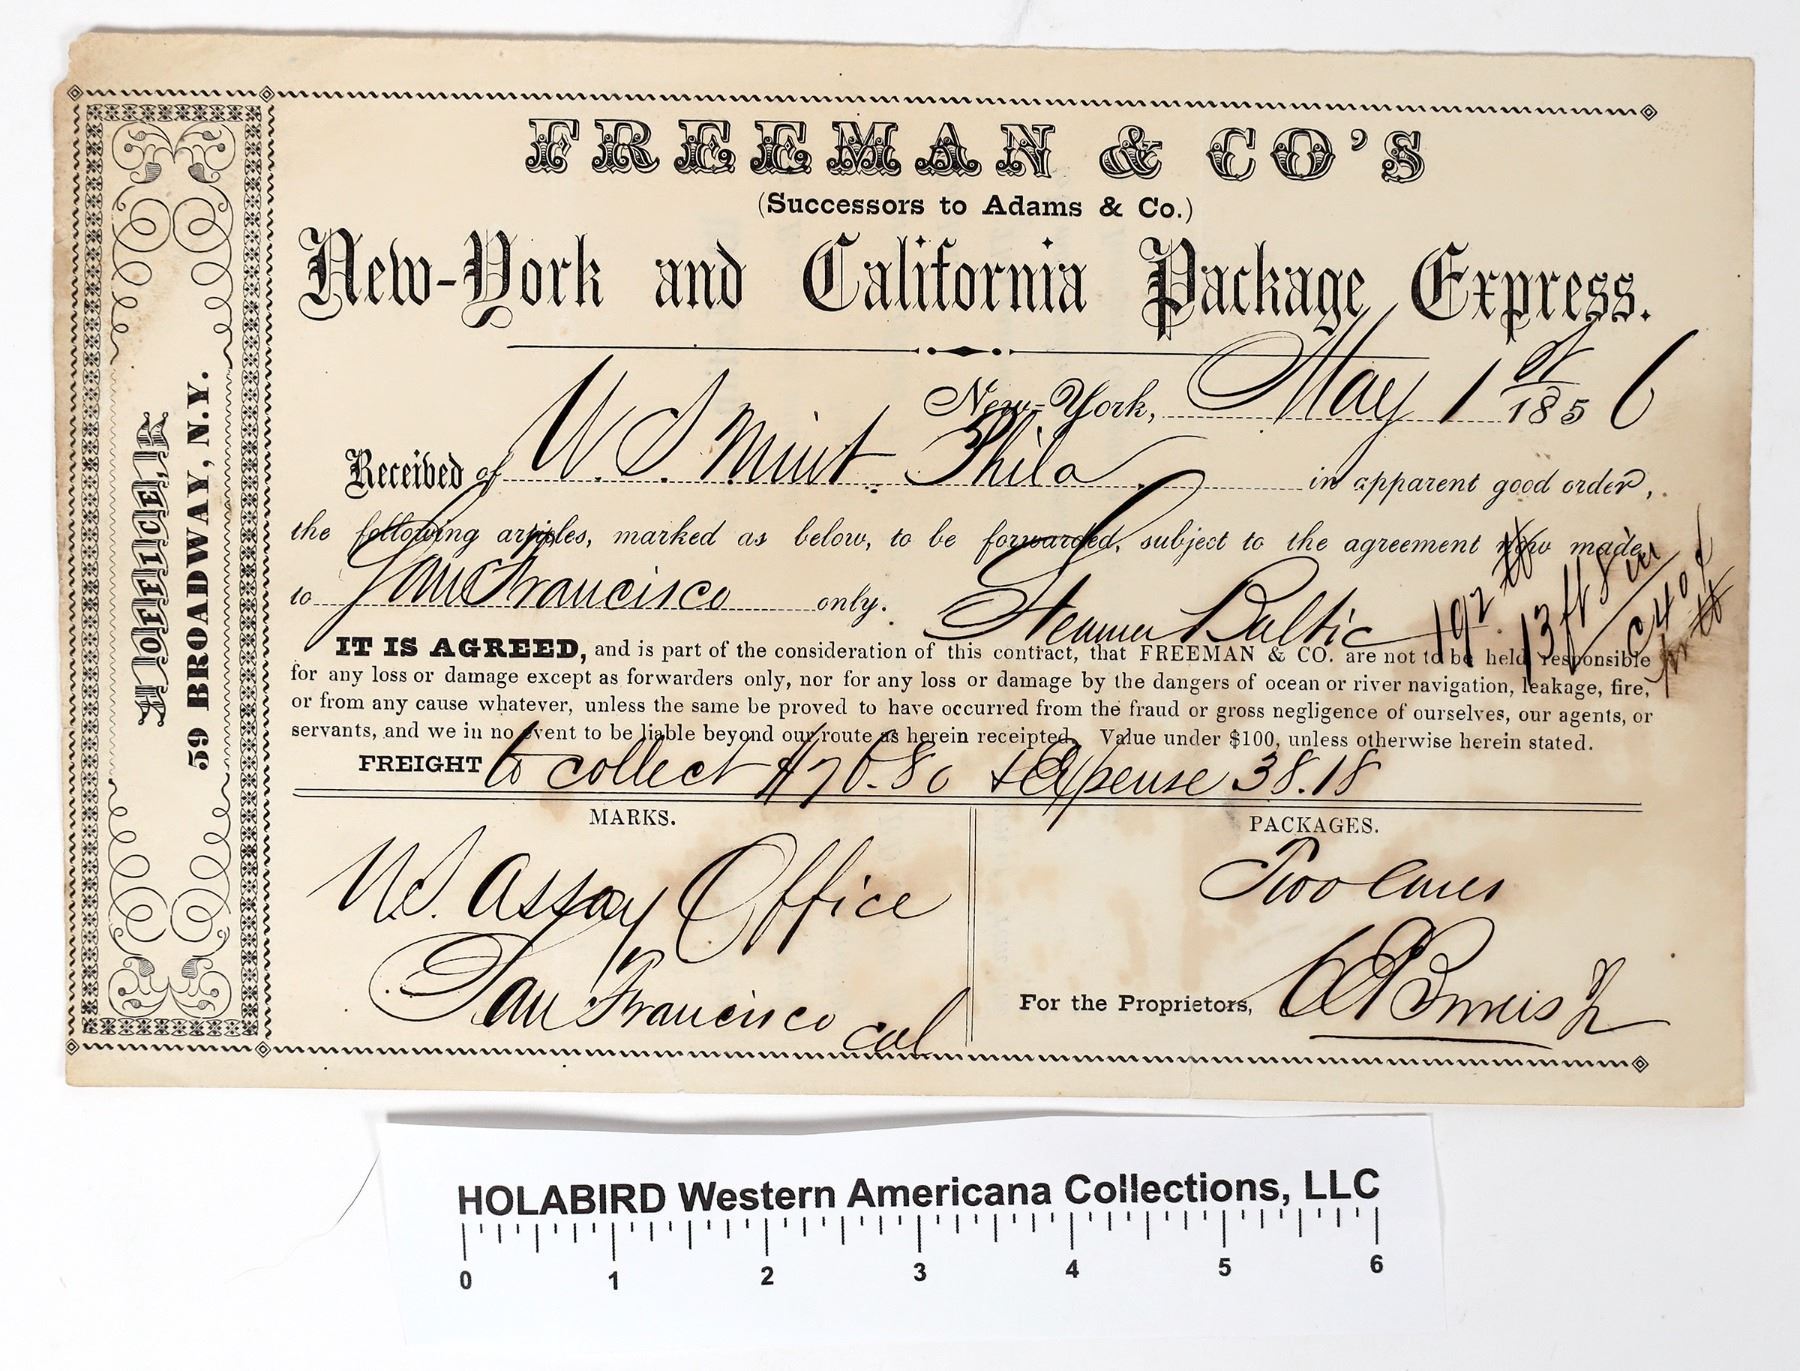 FREEMAN & CO'S
(Successors to Adams & Co.)
New-York and California Package Express.
New-York, May 1st 1856
Received of U.S. Mint Phila in apparent good order,
the following articles, marked as below, to be forwarded, subject to the agreement now made
to San Francisco only. Steamer Baltic
192 lb
13 ft 8 in
c 40¢
IT IS AGREED, and is part of the consideration of this contract, that FREEMAN & CO. are not to be held responsible
for any loss or damage except as forwarders only, nor for any loss or damage by the dangers of ocean or river navigation, leakage, fire,
or from any cause whatever, unless the same be proved to have occurred from the fraud or gross negligence of ourselves, our agents, or
servants, and we in no event to be liable beyond our route as herein receipted. Value under $100, unless otherwise herein stated.
FREIGHT to collect $76.80 & Expense 38.18
MARKS.
US. Assay Office
San Francisco
Cal
PACKAGES.
Two Cases
For the Proprietors,
OFFICE
59 BROADWAY, N.Y.
HOLABIRD Western Americana Collections, LLC
0 1 2 3 4 5 6